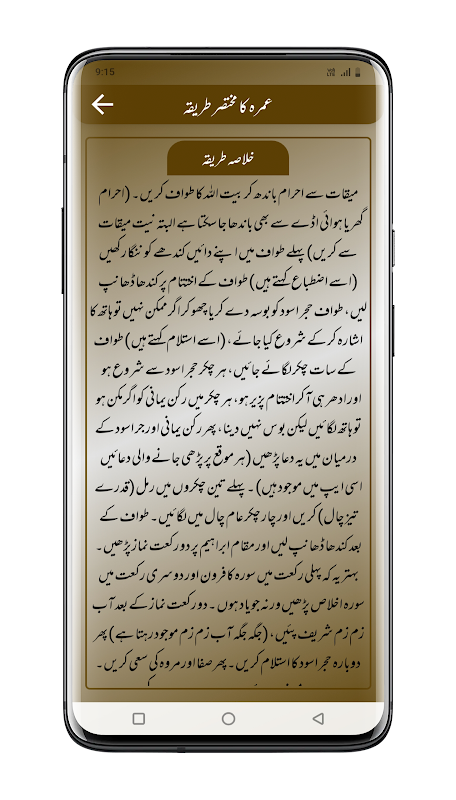 9:15
عمرہ کا مختصر طریقہ
خلاصہ طریقہ
میقات سے احرام باندھ کر بیت اللہ کا طواف کریں۔ (احرام
گھر یا ہوائی اڈے سے بھی باندھا جا سکتا ہے البتہ نیت میقات
سے کریں) پہلے طواف میں اپنے دائیں کندھے کو ننگا رکھیں
(اسے اضطباع کہتے ہیں) طواف کے اختتام پر کندھا ڈھانپ
لیں، طواف حجر اسود کو بوسہ دے کر یا چھو کر اگر ممکن نہیں تو ہاتھ کا
اشارہ کر کے شروع کیا جائے، (اسے استلام کہتے ہیں) طواف
کے سات چکر لگائے جائیں، ہر چکر حجر اسود سے شروع ہو
اور ادھر ہی آ کر اختتام پزیر ہو، ہر چکر میں رکن یمانی کو اگر مکن ہو
تو ہاتھ لگائیں لیکن بوس نہیں دینا، پھر رکن یمانی اور جر اسود کے
درمیان میں یہ دعا پڑھیں (ہر موقع پر پڑھی جانے والی دعائیں
اسی ایپ میں موجود ہیں)۔ پہلے تین چکروں میں رمل (قدرے
تیز چال) کریں اور چار چکر عام چال میں لگائیں۔ طواف کے
بعد کندھا ڈھانپ لیں اور مقام ابراہیم پر دو رکعت نماز پڑھیں۔
بہتر یہ کہ پہلی رکعت میں سورہ کافرون اور دوسری رکعت میں
سورہ اخلاص پڑھیں ورنہ جو یاد ہوں۔ دو رکعت نماز کے بعد آب
زم زم شریف پئیں، (جگہ جگہ آب زم زم موجود رہتا ہے) پھر
دوبارہ حجر اسود کا استلام کریں۔ پھر صفا اور مروہ کی سعی کریں۔